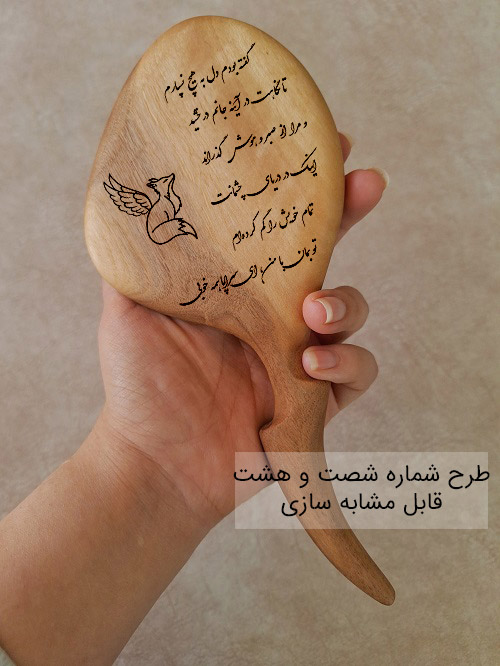 گفته بودم دل به هیچ نسپارم
تا نگاهت در آینه جانم درخشید
و مرا از صبر و هوش گذراند
اینک در دریای چشمانت
تمام خویش را گم کرده‌ام
تو بمان با من، ای سراپا همه خوبی
طرح شماره شصت و هشت
قابل مشابه سازی